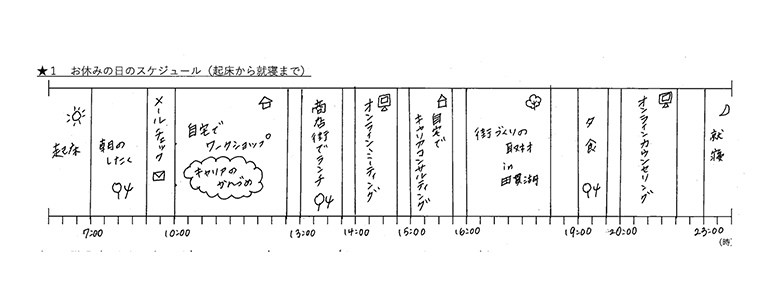 ★1 お休みの日のスケジュール（起床から就寝まで）
起床
朝の
したく
メールチェック
自宅で
ワークショップ
キャリアの
かんづめ
商店街でランチ
オンラインミーティング
自宅で
キャリアコンサルティング
街づくりの
取材
in
田貫湖
夕食
オンラインカウンセリング
就寝
7:00
10:00
13:00
14:00
15:00
16:00
19:00
20:00
23:00
(時)